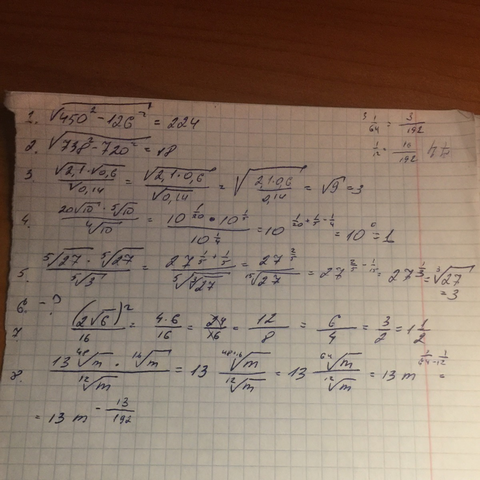 1. √450² - 126² = 224
2. √738² - 720² = 18
3 √2,1·√0,6 / √0,14 = √2,1·0,6 / √0,14 = √2,1·0,6 / 0,14 = √9 = 3
4. 20√10 · 5√10 / 4√10 = 10^1/20 · 10^1/5 / 10^1/4 = 10^1/20+1/5-1/4 = 10^0 = 1
5. 5√27 · 5√27 / 5√3 = 27^1/5+1/5 / = 27^2/5 / 15√27 = 27^2/5-1/15 = 27^1/3 = 3√27
= 3
6. - ?
7 (2√6)² / 16 = 4·6 / 16 = 24 / 16 = 12 / 8 = 6 / 4 = 3 / 2 = 1 1/2
8. 13 48√m · 16√m / 12√m = 13 48·16√m / 12√m = 13 64√m / 12√m = 13 m^1/64-1/12 =
= 13 m^-13/192
3 1/64 = 3/192
1/12 = 16/192